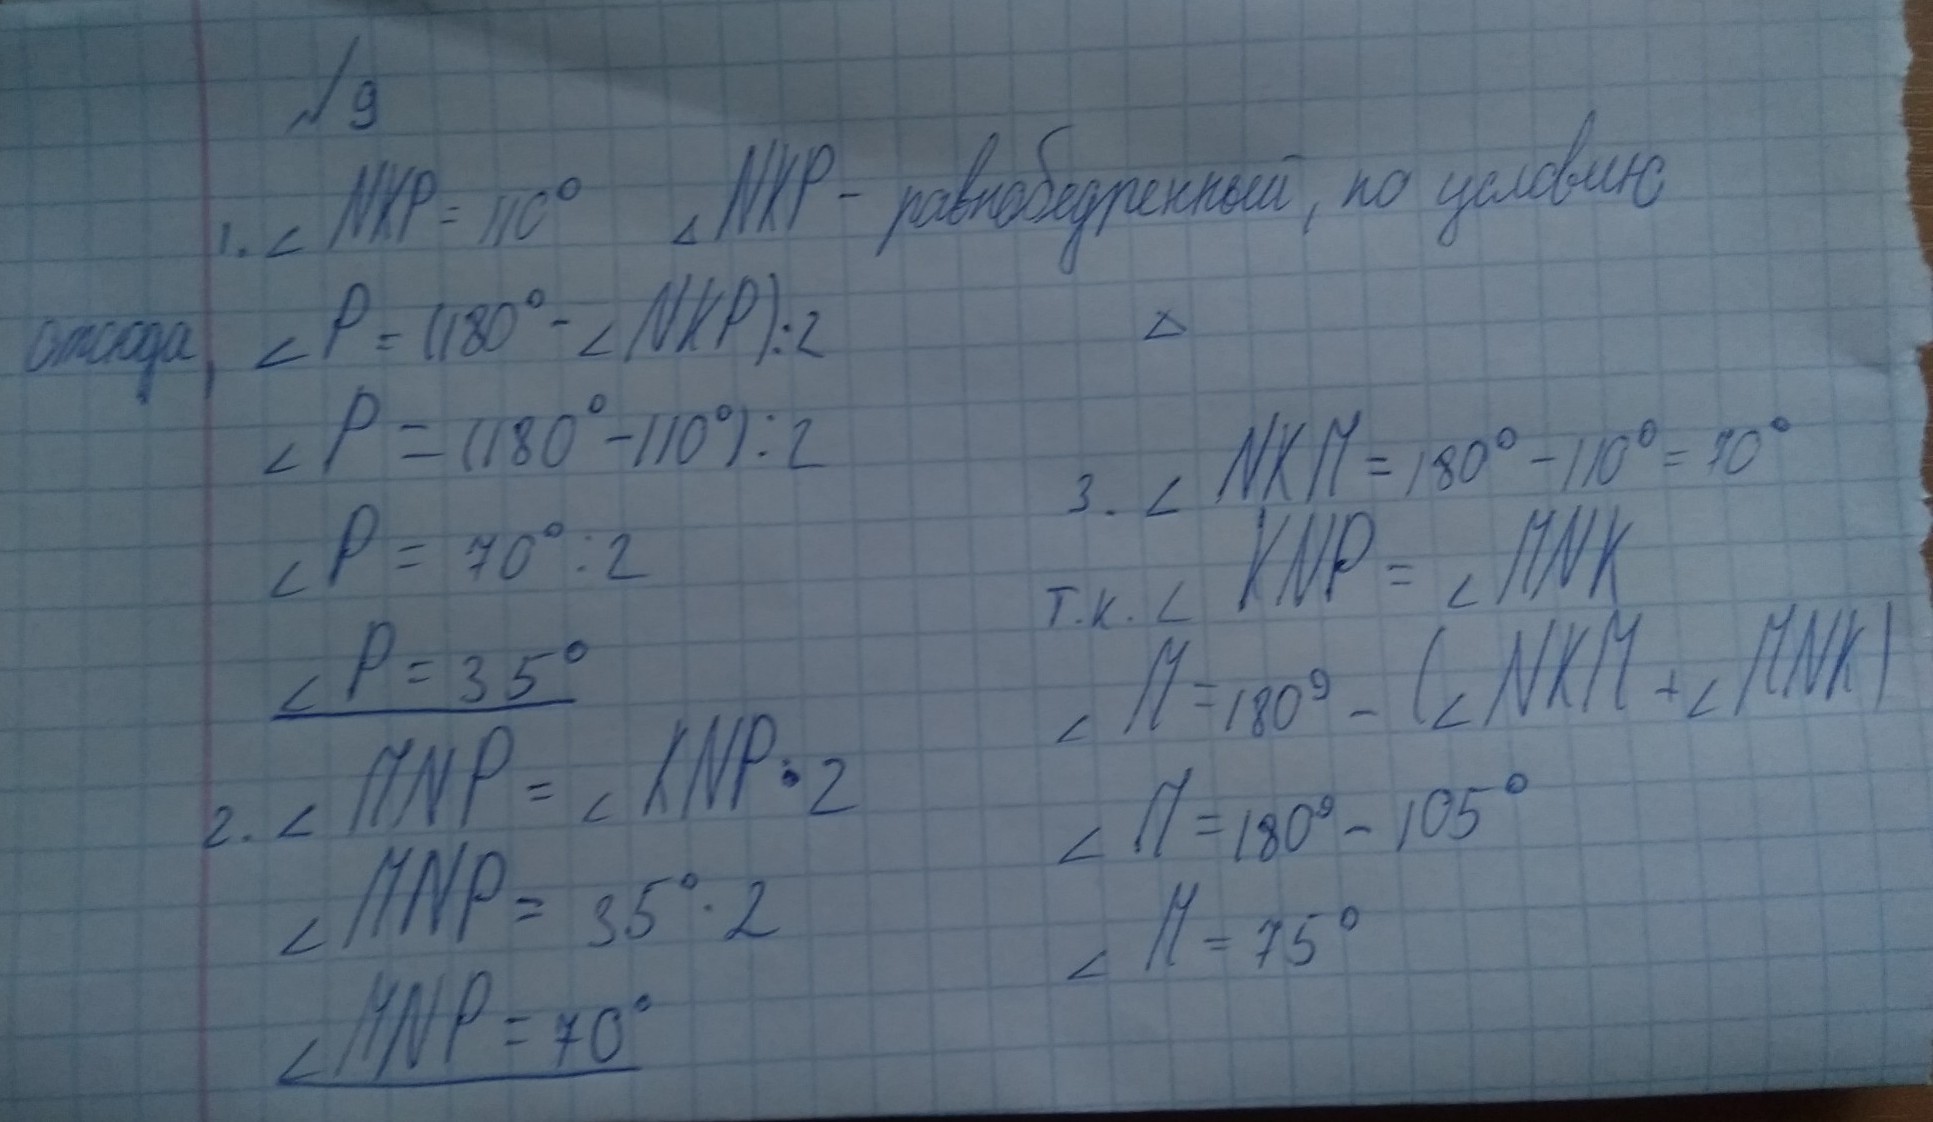 №9
1. ∠NKP = 110° ∠NKP - равнобедренный, по условию
отсюда, ∠P = (180° - ∠NKP):2
∠P = (180° - 110°):2
∠P = 70° : 2
∠P = 35°
2. ∠MNP = ∠KNP · 2
∠MNP = 35° · 2
∠MNP = 70°
△
3. ∠NKM = 180° - 110° = 70°
т.к. ∠KNP = ∠MNK
∠M = 180° - (∠NKM + ∠MNK)
∠M = 180° - 105°
∠M = 75°